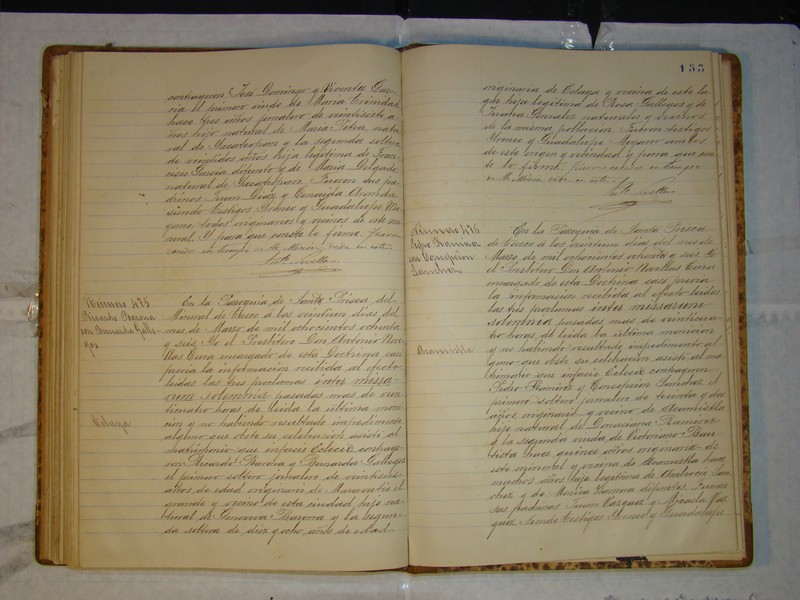 contraguon José Domingo y Vicenta Gar-
cia el primero viudo de Maria Trinidad
hace tres años jornalero de veintisiete a-
ños hijo natural de Maria Petra, natu-
ral de y la segunda soltera
de veintidos años hija legitima de Fran-
cisco Garcia difunto y de Maria Delgado
natural de Fueron sus pa-
drinos Juan Diaz y
siendo testigos Irineo y Guadalupe Mo-
yano, todos originarios y vecinos de este mi-
neral. Y para que conste lo firmé.
Numero 475
Ricardo Barona
con Bernarda Galle-
gos
Celaya
En la Parroquia de Santa Prisca del
Mineral de Tasco á los veintiun dias del
mes de Marzo de mil ochocientos ochenta
y seis Yo el Presbitero Don Antonio Nove-
llas Cura encargado de esta Doctrina casé
previa la informacion recibida al efecto
leidas las tres proclamas inter missa-
rum solemnia pasadas mas de vein-
ticuatro horas de leida la ultima moni-
cion y no habiendo resultado impedimento
alguno que obste su celebracion asisti al
matrimonio que infacie Eclecie contraje-
ron Ricardo Barona y Bernarda Gallegos
el primero soltero jornalero de veintiseis
años de edad originario de Maravatio el
grande y vecino de esta ciudad hijo na-
tural de Barona y la segun-
da soltera de diez y ocho años de edad
155
originaria de Celaya y vecina de este lu-
gar hija legitima de Rosa Gallegos y de
Juana Gonzalez naturales y vecinos
de la misma poblacion Fueron testigos
Irineo y Guadalupe Moyano ambos
de este origen y vecindad y para que cons-
te lo firmé.
Numero 476
Pedro Ramirez
con Concepcion
Sanchez
Acamistla
En la Parroquia de Santa Prisca
de Tasco á los veintiun dias del mes de
Marzo de mil ochocientos ochenta y seis Yo
el Presbitero Don Antonio Novellas Cura
encargado de esta Doctrina casé previa
la informacion recibida al efecto leidas
las tres proclamas inter missarum
solemnia pasadas mas de veinticua-
tro horas de leida la ultima monicion
y no habiendo resultado impedimento al-
guno que obste su celebracion asisti al ma-
trimonio que infacie Eclecie contrageron
Pedro Ramirez y Concepcion Sanchez el
primero soltero jornalero de treinta y dos
años, originario y vecino de Acamistla
hijo natural de Donaciana Ramirez
y la segunda viuda de Victoriano Bau-
tista hace quince años originaria de
este mineral y vecina de Acamistla hace
muchos años hija legitima de San-
chez y de Romero difuntos Fueron
sus padrinos Juan Vazquez y Micaela Vaz-
quez siendo testigos Irineo y Guadalupe